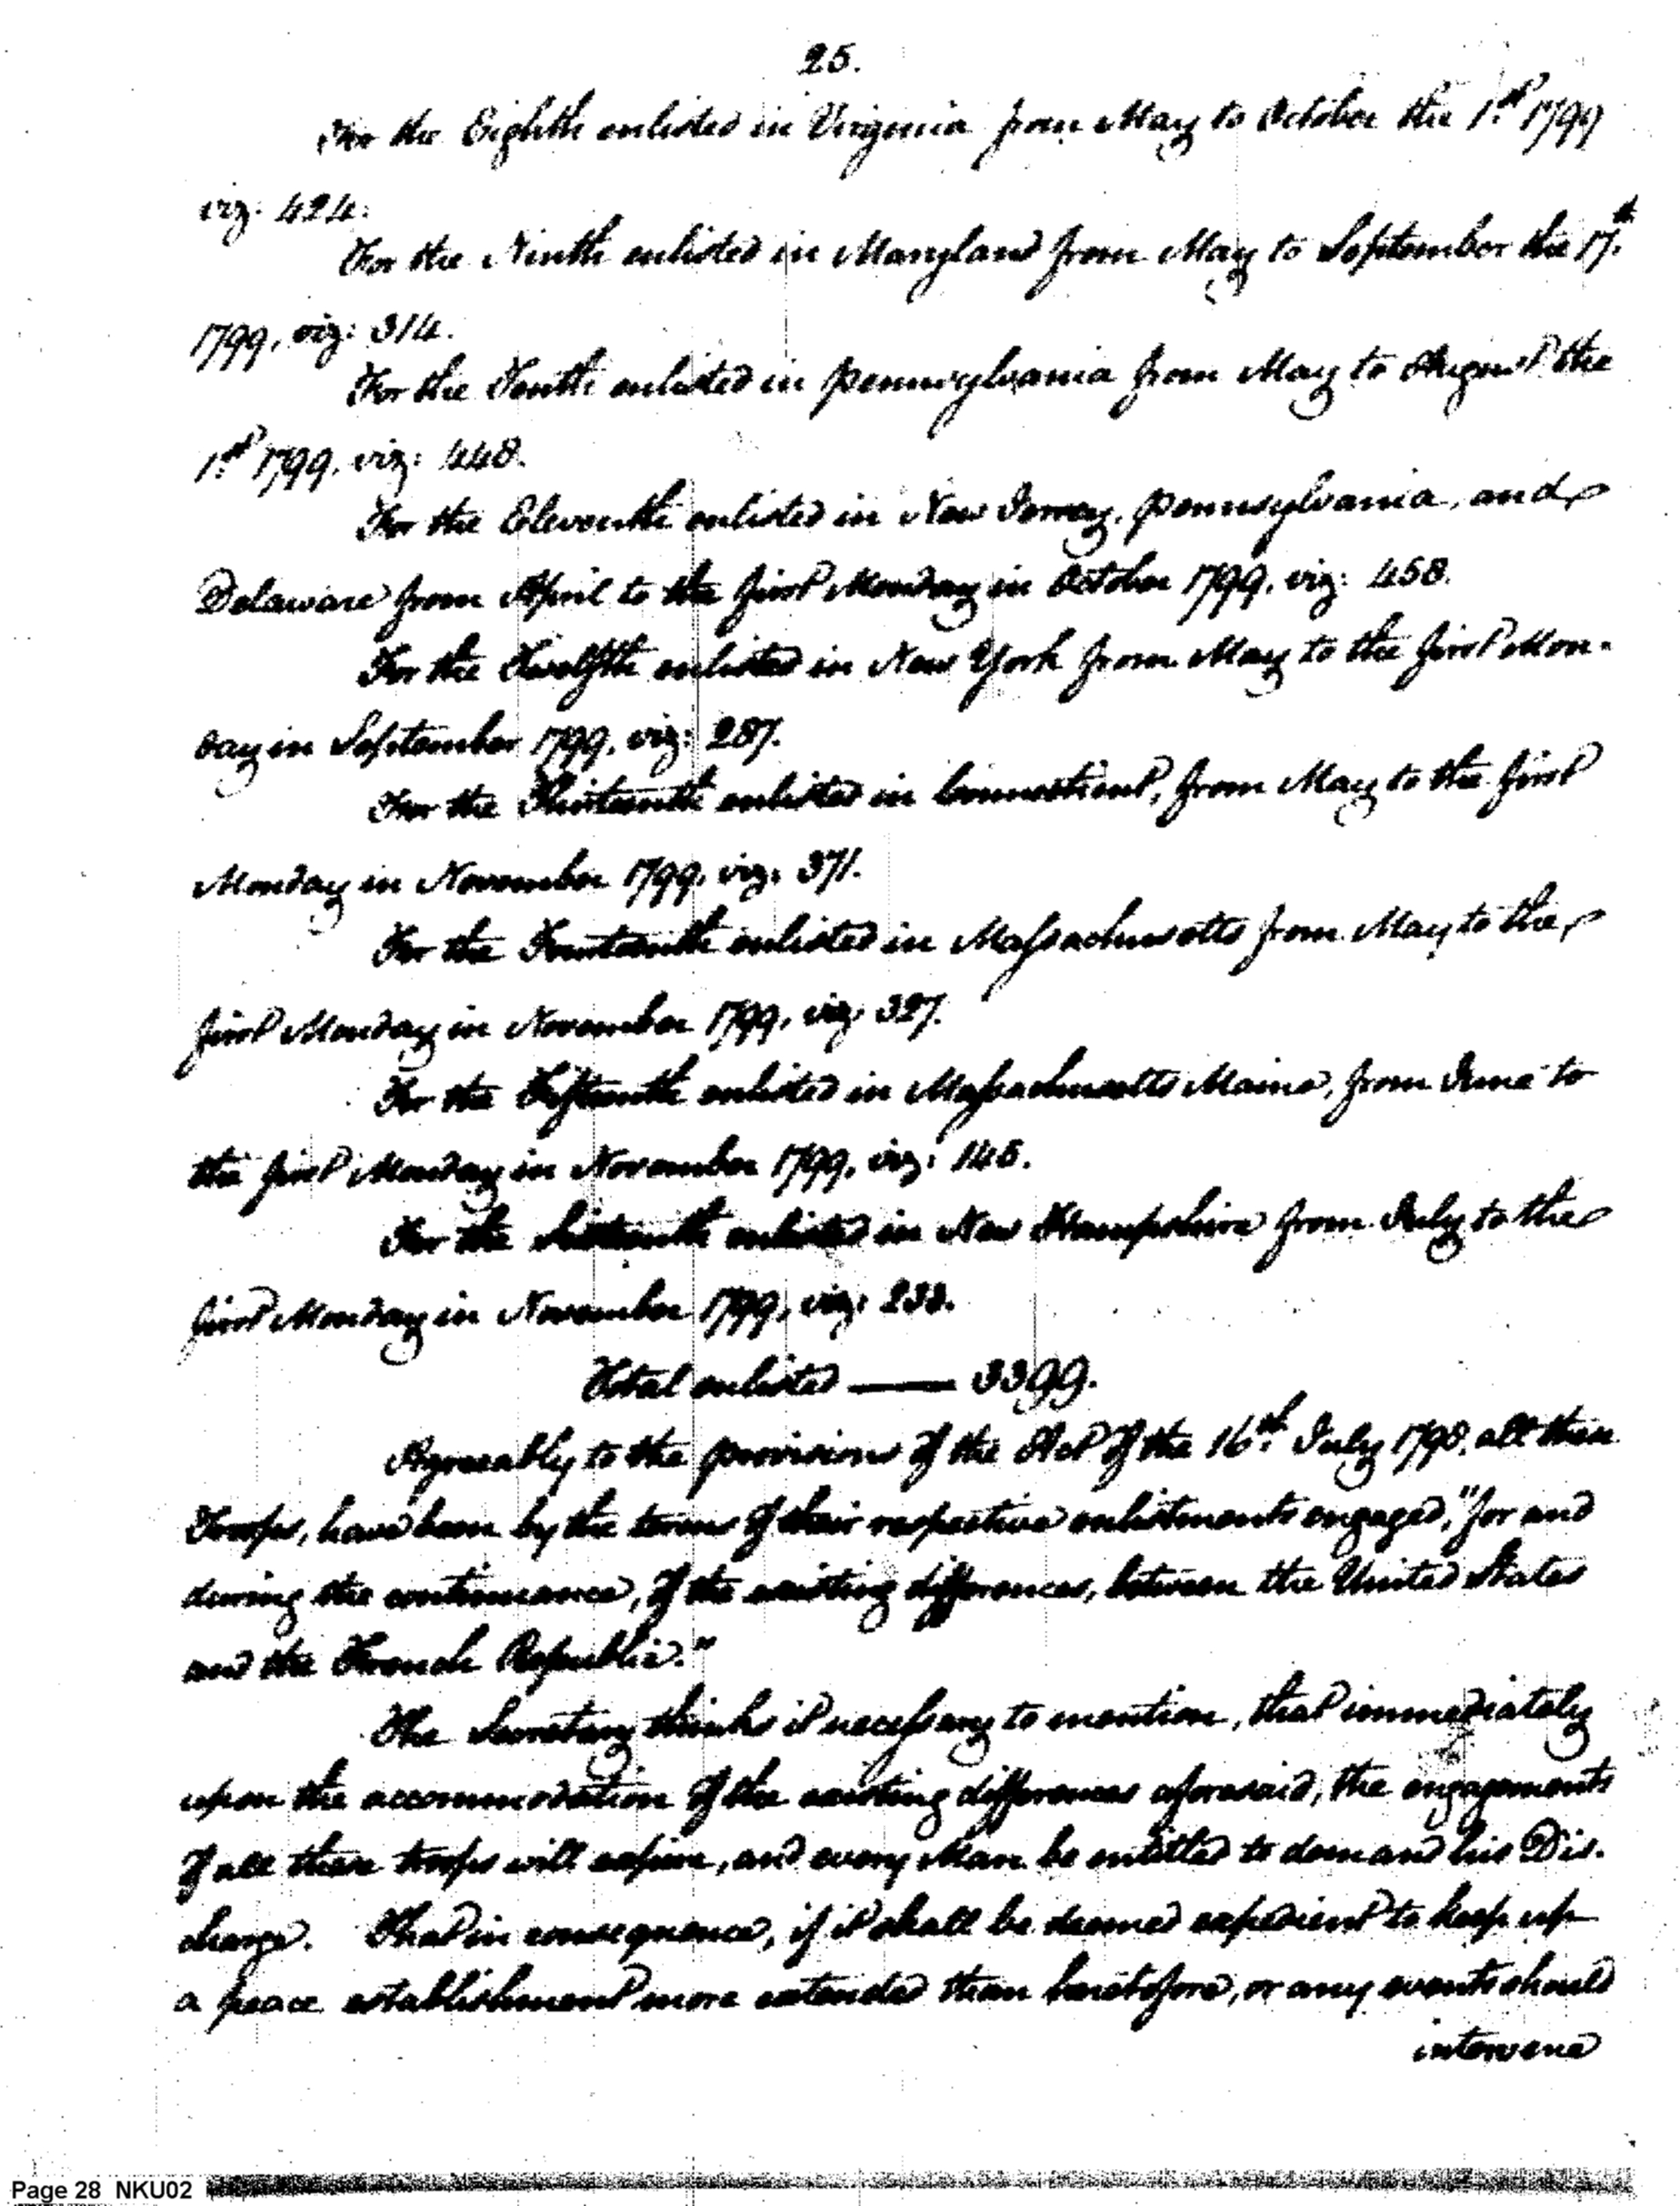 25.
For the Eighth enlisted in Virginia from May to October the 1st 1799
viz: 424.
For the Ninth enlisted in Maryland from May to September the 17th
1799, viz: 314.
For the Tenth enlisted in Pennsylvania from May to August the
1st 1799, viz: 448.
For the Eleventh enlisted in New Jersey, Pennsylvania, and
Delaware from April to the first Monday in October 1799, viz: 458.
For the Twelfth enlisted in New York from May to the first Mon-
day in September 1799, viz: 287.
For the Thirteenth enlisted in Connecticut, from May to the first
Monday in November 1799, viz: 371.
For the Fourteenth enlisted in Massachusetts from May to the
first Monday in November 1799, viz: 327.
For the Fifteenth enlisted in Massachusetts Maine, from June to
the first Monday in November 1799, viz:
For the Sixteenth enlisted in New Hampshire from July to the
first Monday in November 1799, viz:
Total enlisted —— 3399.
Agreeably to the provisions of the Act of the 16th July 1798, all these
Troops, have been by the terms of their respective enlistments engaged, "for and
during the continuance, of the existing differences, between the United States
and the French Republic."
The Secretary thinks it necessary to mention, that immediately
upon the accommodation of the existing differences aforesaid, the engagements
of all these troops will expire, and every Man be entitled to demand his Dis-
charge. That in consequence, if it shall be deemed expedient to keep up
a peace establishment more extended than heretofore, or any events should
intervene
Page 28 NKU02